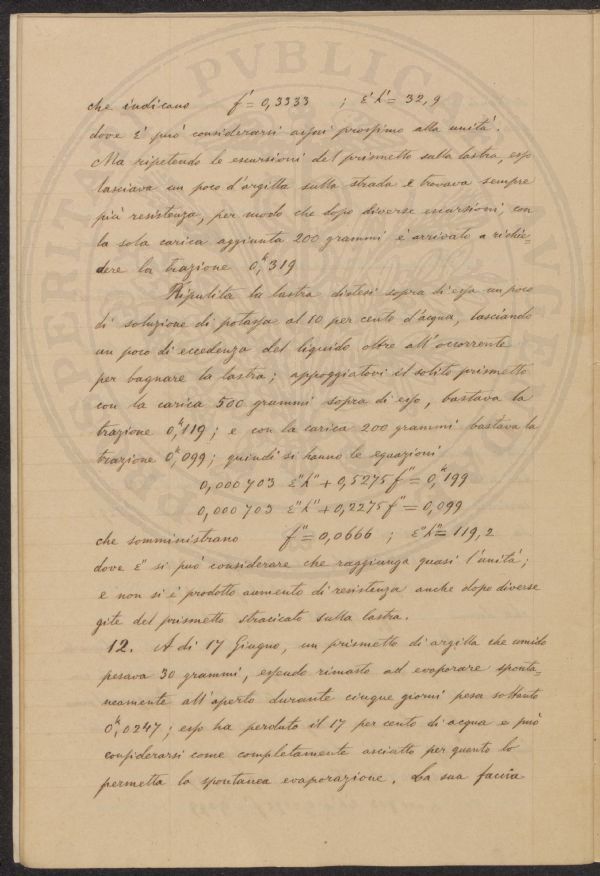 che indicano f' = 0,3333 ; ε'h' = 32,9
dove ε' può considerarsi assai prossimo alla unità.
Ma ripetendo le escursioni del prismetto sulla lastra, esso
lasciava un poco d'argilla sulla strada e trovava sempre
più resistenza, per modo che dopo diverse escursioni, con
la sola carica aggiunta 200 grammi è arrivato a richie=
dere la trazione 0,ᵏ319
Ripulita la lastra distesi sopra di essa un poco
di soluzione di potassa al 10 per cento d'acqua, lasciando
un poco di eccedenza del liquido oltre all'occorrente
per bagnare la lastra; appoggiatovi il solito prismetto
con la carica 500 grammi sopra di esso, bastava la
trazione 0,ᵏ119; e con la carica 200 grammi bastava la
trazione 0,ᵏ099; quindi si hanno le equazioni
0,000703 ε''h'' + 0,5275 f'' = 0,ᵏ199
0,000703 ε''h'' + 0,2275 f'' = 0,099
che somministrano f'' = 0,0666 ; ε''h'' = 119,2
dove ε'' si può considerare che raggiunga quasi l'unità;
e non si è prodotto aumento di resistenza anche dopo diverse
gite del prismetto strascicato sulla lastra.
12. A dì 17 Giugno, un prismetto di argilla che umido
pesava 30 grammi, essendo rimasto ad evaporare sponta=
neamente all'aperto durante cinque giorni pesa soltanto
0,ᵏ0247; esso ha perduto il 17 per cento di acqua e può
considerarsi come completamente asciatto per quanto lo
permetta la spontanea evaporazione. La sua faccia
PVBLICA